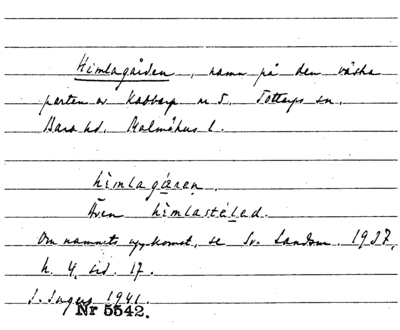 Himlagården, namn på den västra
parten av Kabbarp nr 5. Tottarps sn.
Bara hd. Malmöhus l.
hìmlagǻren
Även hìmlastéled.
Om namnets uppkomst, se Sv. Landsm. 1937,
h. 4, sid. 17.
J. Ingers 1941.
Nr 5542.